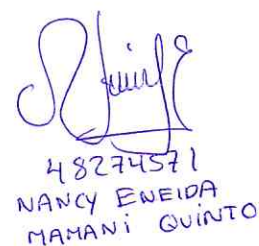 48274571
NANCY ENEIDA
MAMANI QUINTO